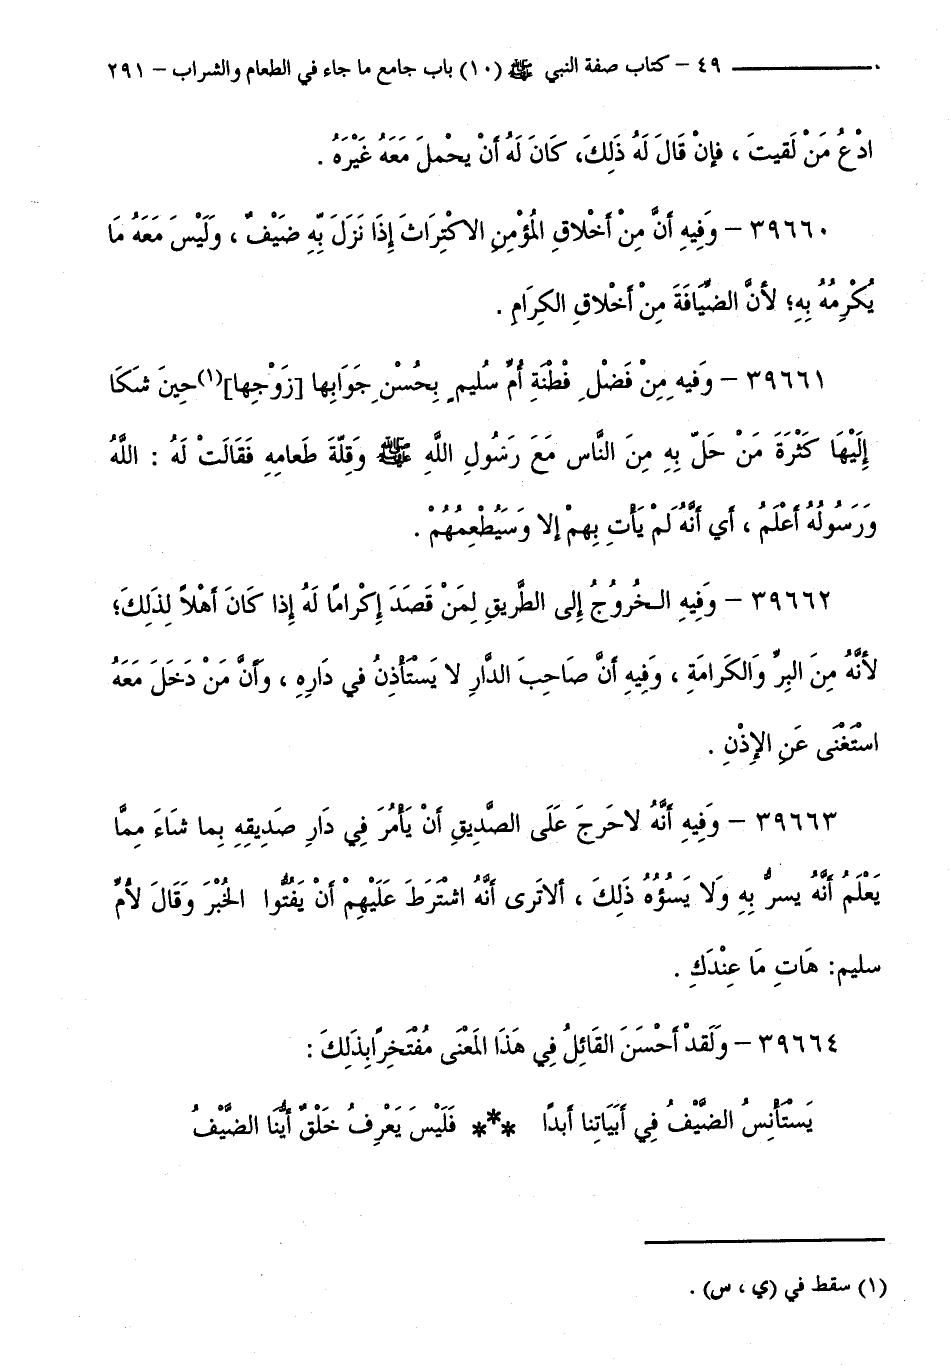 ٤٩ – كتاب صفة النبي ﷺ (١٠) باب جامع ما جاء في الطعام والشراب – ٢٩١
ادْعُ مَنْ لَقيتَ ، فإنْ قَالَ لَهُ ذَلِكَ، كَانَ لَهُ أنْ يحْملَ مَعَهُ غَيْرَهُ .
٣٩٦٦٠ – وَفِيهِ أنَّ مِنْ أخْلاقِ المُؤْمنِ الاكْتِرَاثَ إذَا نَزَلَ بِهِ ضَيْفٌ ، وَلَيْسَ مَعَهُ مَا
يُكْرِمُهُ بِهِ؛ لأنَّ الضِّيَافَةَ مِنْ أخْلاقِ الكِرَامِ .
٣٩٦٦١ – وَفيهِ مِنْ فَضْلِ فِطْنَةِ أُمِّ سُليمٍ بِحُسْنِ جَوَابِها [زَوْجِها](١) حِينَ شَكَا
إلَيْهَا كَثْرَةَ مَنْ حَلَّ بِهِ مِنَ النَّاس مَعَ رَسُولِ اللَّهِ ﷺ وَقِلَّةَ طَعامِهِ فَقَالَتْ لَهُ : اللَّهُ
وَرَسُولُهُ أعْلَمُ ، أي أنَّهُ لَمْ يَأتِ بِهمْ إلا وَسَيُطْعِمُهُمْ .
٣٩٦٦٢ – وَفِيهِ الـخُرُوجُ إلى الطَّريقِ لِمَنْ قَصَدَ إكْرامًا لَهُ إذا كَانَ أهْلاً لِذَلِكَ؛
لأنَّهُ مِنَ البِرِّ وَالكَرامَةِ ، وَفِيهِ أنَّ صَاحِبَ الدَّارِ لا يَسْتَأذِنُ في دَارِهِ ، وأنَّ مَنْ دَخَلَ مَعَهُ
اسْتَغْنَى عَنِ الإذْنِ .
٣٩٦٦٣ – وَفِيهِ أنَّهُ لاحَرجَ عَلَى الصَّديقِ أنْ يَأمُرَ فِي دَارِ صَدِيقِهِ بِما شاءَ مِمَّا
يَعْلَمُ أنَّهُ يسرُّ بِهِ وَلا يَسُؤُهُ ذَلِكَ ، ألاتَرى أنَّهُ اشْتَرَطَ عَلَيْهِمْ أنْ يَفُتُّوا الخُبْزَ وَقَالَ لأُمِّ
سليم: هَاتِ مَا عِنْدَكِ .
٣٩٦٦٤ – وَلَقدْ أحْسَنَ القَائِلُ فِي هَذَا المَعْنَى مُفْتَخِرًا بِذَلِكَ :
يَسْتَأنِسُ الضَّيْفُ فِي أبَيَاتِنا أبدًا *** فَلَيْسَ يَعْرِفُ خَلْقٌ أيُّنَا الضَّيْفُ
(١) سقط في (ي ، س) .